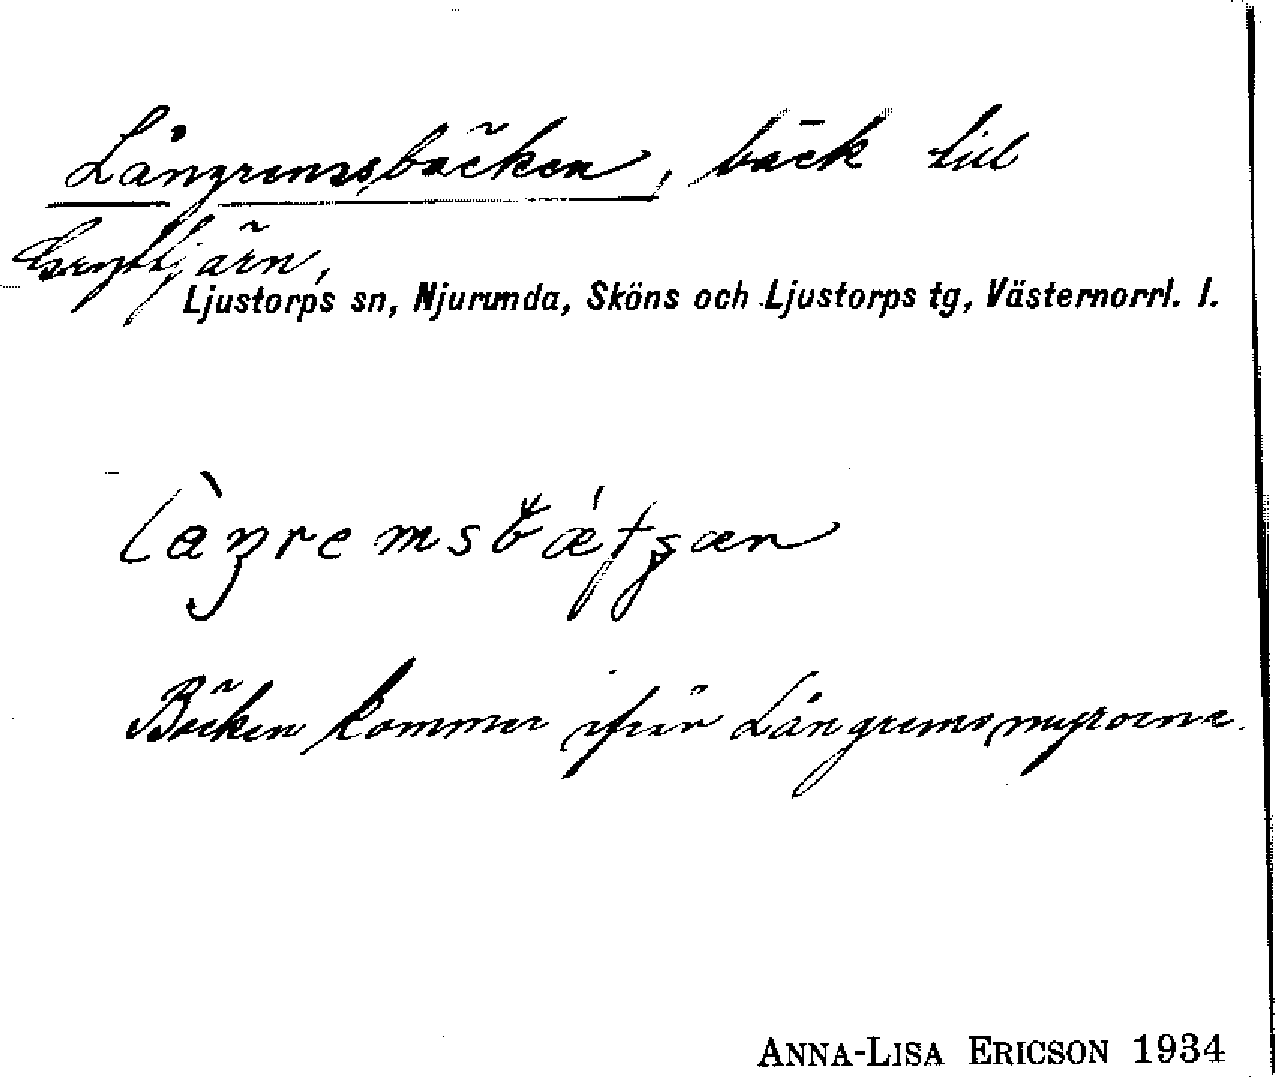 Långremsbäcken, bäck till
Gryttjärn,
Ljustorps sn, Njurunda, Sköns och Ljustorps tg, Västernorrl. l.
Bäcken kommer ifrån Långremsmyrorna.
ANNA-LISA ERICSON 1934